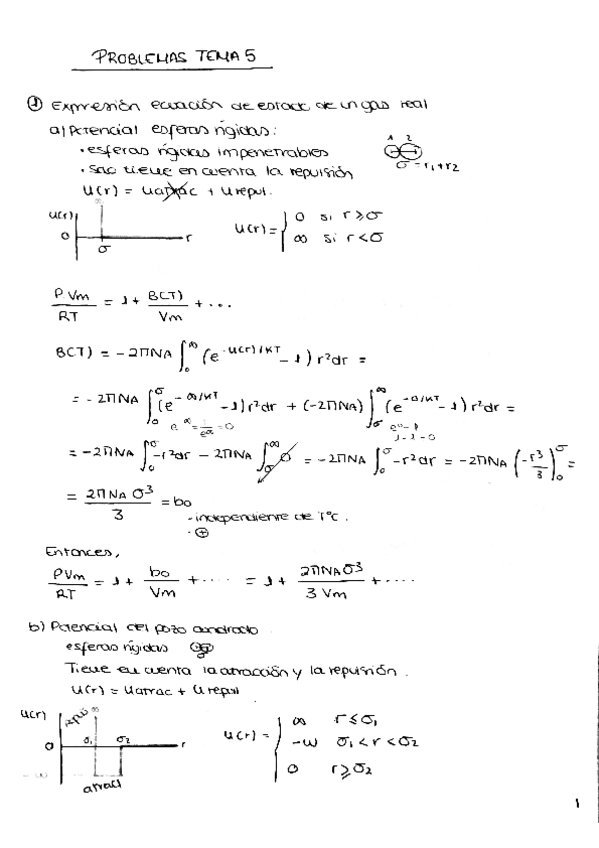 PROBLEMAS TEMA 5
① Expresión ecuación de estado de un gas real
a) Potencial esferas rígidas:
· esferas rígidas impenetrables
1 2
· solo tiene en cuenta la repulsión
σ = r1 + r2
U(r) = Uatrac + Urepul.
U(r) ∞
0 r
σ
U(r) = { 0 si r ≥ σ
∞ si r < σ
P.Vm/RT = 1 + B(T)/Vm + ...
B(T) = -2πNA ∫₀^∞ (e^(-U(r)/KT) - 1) r²dr =
= -2πNA ∫₀^σ (e^(-∞/KT) - 1) r²dr + (-2πNA) ∫σ^∞ (e^(-0/KT) - 1) r²dr =
e^-∞ = 1/e^∞ = 0
e⁰ = 1
1 - 1 = 0
= -2πNA ∫₀^σ -r²dr - 2πNA ∫σ^∞ 0 = -2πNA ∫₀^σ -r²dr = -2πNA (-r³/3)₀^σ =
= 2πNA σ³/3 = b0
- independiente de TºC.
- ⊕
Entonces,
PVm/RT = 1 + b0/Vm + .... = 1 + 2πNAσ³/3Vm + ....
b) Potencial del pozo cuadrado
esferas rígidas
Tiene en cuenta la atracción y la repulsión.
U(r) = Uatrac + Urepul
U(r) ∞
0 σ1 σ2 r
-w
atracc
U(r) = { ∞ r ≤ σ1
-w σ1 < r < σ2
0 r ≥ σ2
1